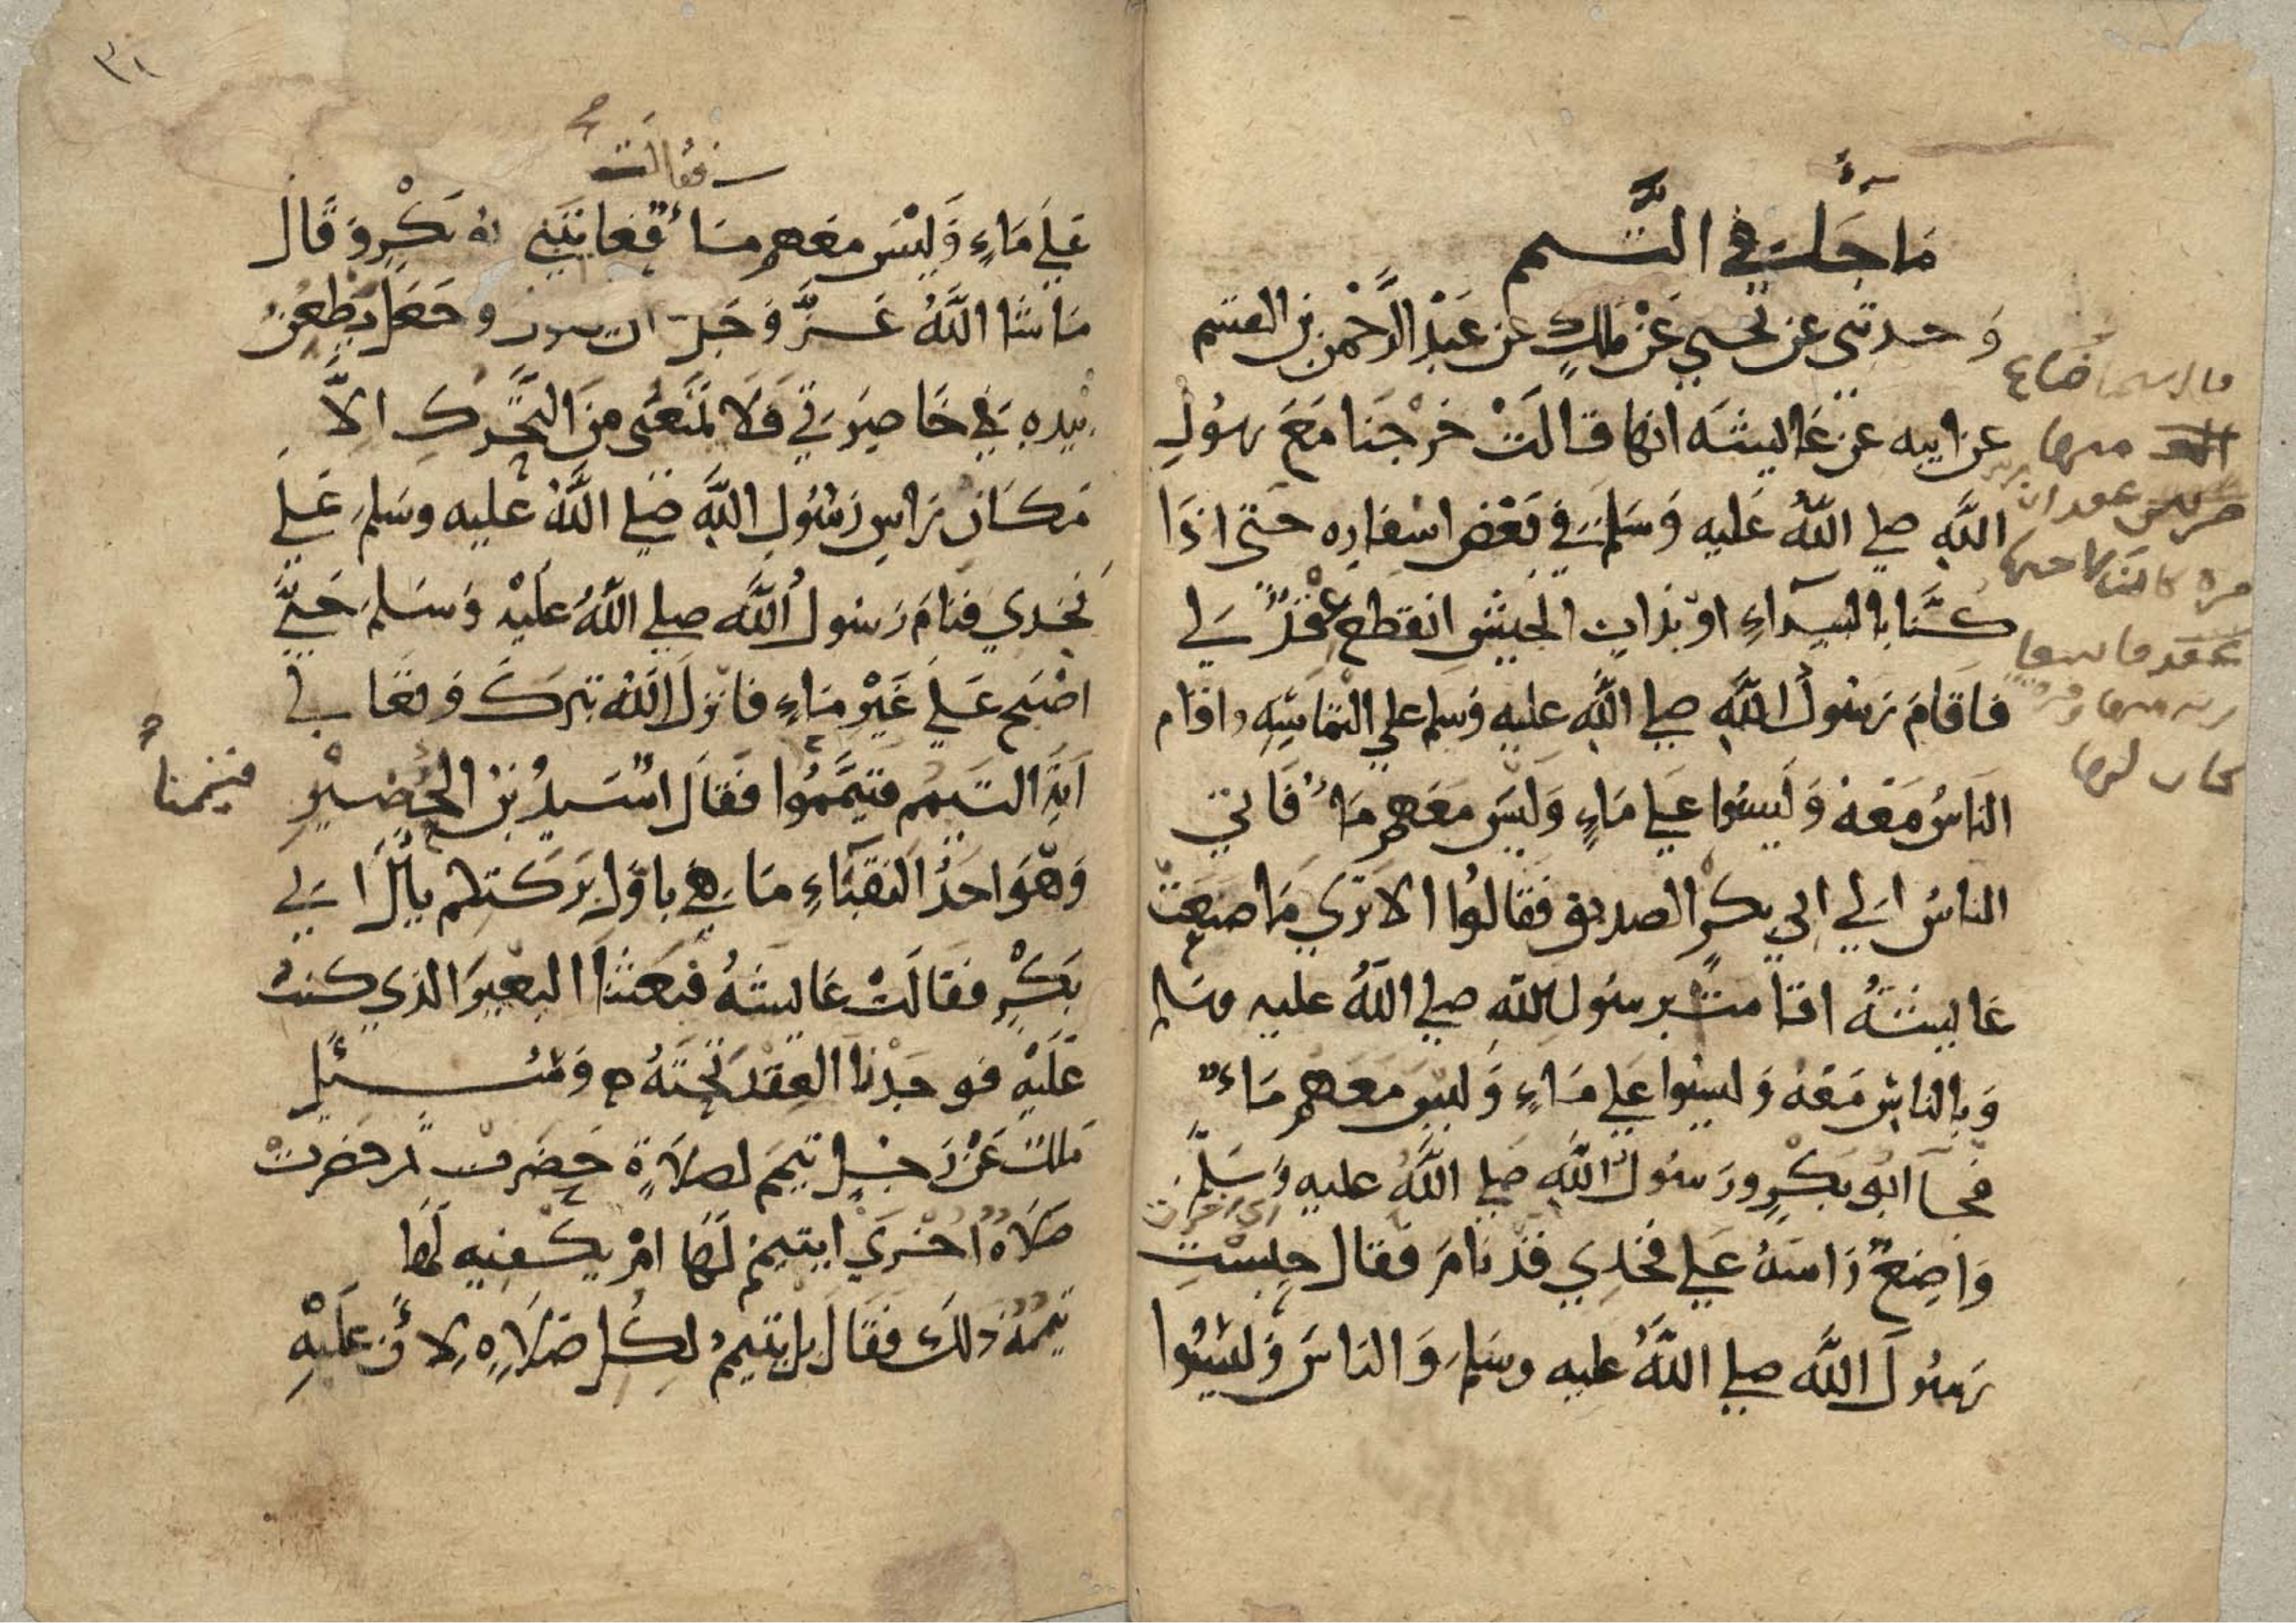 ما جآء في التَّيمم
وَحدثني عن يحيي عَنْ مَلكٍ عن عَبْدِ الرَّحْمنِ بن القسم
عن ابيه عن عَاييشَه انها قالَتْ خَرْجَنا مَعَ رسُولِ
اللَّهِ صلي اللَّهُ عَليه وَسَلم في بَعْضِ اسْفارِه حَتي اذَا
كنَّا بالبيدآءِ اوْ بذاتِ الجيْشِ انقطع عِقْدٌ لي
فاقَامَ رَسُولُ اللَّهِ صلي اللَّه عليه وَسلم علي الْتمَاسِه واقام
النَاسُ مَعَهُ وَليسُوا عَلي مَاءٍ وَليسَ مَعَهم مَاءٌ فَاتي
الناسُ الي ابي بكرٍ الصديق فَقَالوُا الا تَري مَا صنَعَتْ
عَاييشَهُ اقامتْ برسُولِ اللَّهِ صلي اللَّهُ عليه وسَلم
وَبالناسِ مَعَهُ وَليسُوا عَلي مَاءٍ وَليسَ مَعَهم مَاءٌ
فجآ ابُو بَكْرٍ ورَسُولُ اللَّهِ صَلي اللَّهُ عليهِ وَسَلَّم
وَاضِعٌ رَاسَهُ عَلي فخذِي قدْ نامَ فقال حبسْتِ
رَسُولَ اللَّهِ صلي اللَّهُ عليه وسَلم وَالناسَ وَليْسُوا
٣١
فقالت
عَلي مَاءٍ وَليْسَ مَعَهم مَاءٌ فعاتبَني بَكْرٍ وَقَالَ
مَا شا اللَّهُ عَزَّ وَجَلَّ ان يقول وَجَعَل يَطْعُنُ
بيدِهِ في خَاصِرَتي فَلا يمنَعُني مِنَ التحَّركِ الاَّ
مَكانُ رَاسِ رَسُولِ اللَّهِ صلي اللَّهُ عليه وسَلم عَلي
فخذي فنَامَ رَسُولُ اللَّهِ صلي اللَّهُ عَليْه وَسَلم حَتيَّ
اصْبح عَلي غَيْرِ مَاءٍ فانزلَ اللَّهُ تبَرَكَ وَتعَالي
ايَة التَيمم فتيَمَّمُوا فَقالَ اسَيدُ بنْ الحُضيْرِ
فتيممنا
وَهوَ احَدُ النقبَاءِ مَا هي باوَّلِ بَرَكتكم يالَ ابي
بَكْرٍ فقالَتْ عَاييشَهُ فبَعَثنَا البعيرَ الذي كنتُ
عَلَيْهِ فوجَدْنا العِقْدَ تحْتَهُ ه وَسُئِل
مَلكٌ عَنْ رَجُلٍ تيمَّمَ لصَلاةٍ حَضَرتْ ثم حَضرتْ
صَلاةٌ اخرَي ايتيممُ لَها امْ يكْفيه لَها
تيممُهُ ذلكَ فقَالَ بل يتيممُ لكلِ صَلاةٍ لاَنَّ عَليْهِ